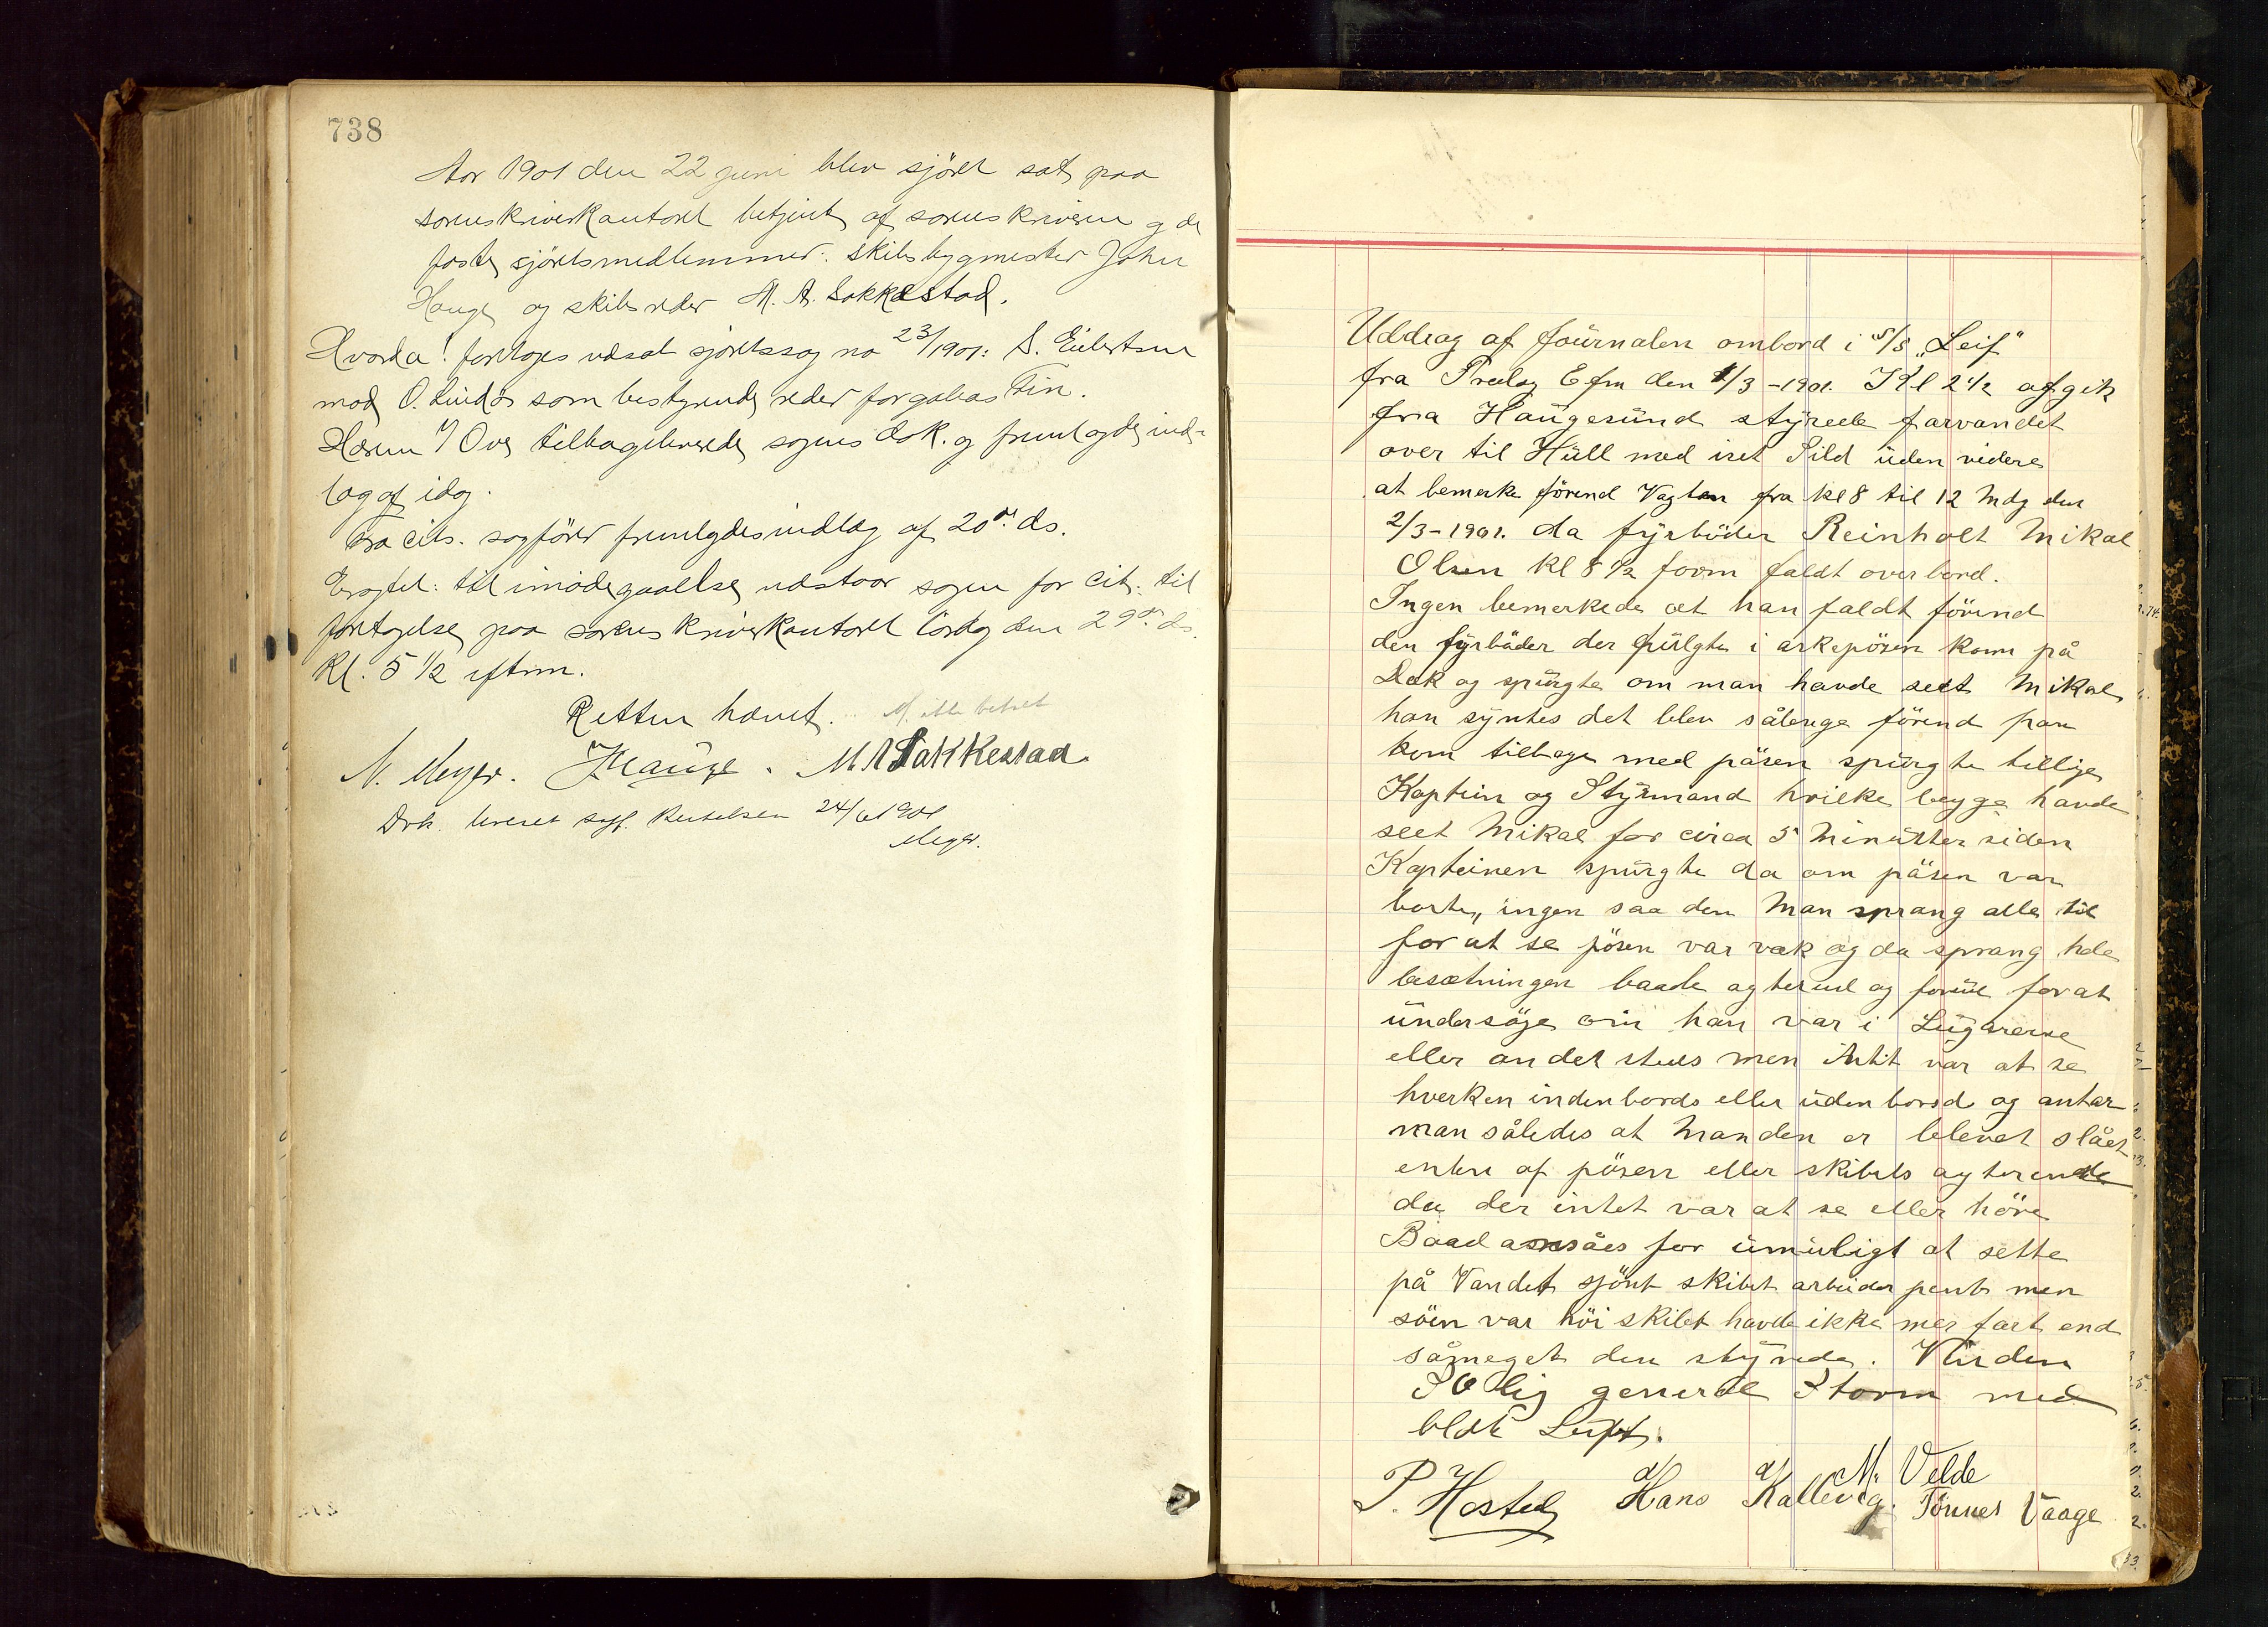 738
Aar 1901 den 22 juni blev sjöret sat paa
sorenskriverkontoret betjent af sorenskriveren og de
faste sjöretsmedlemmer: skibsbygmester John
Hauge og skibsreder M. A. Sakkestad.
Hvorda: foretoges udsat sjöretssag no 23/1901: S. Eilertsen
mod O. Lindø som bestyrende reder for galeas Fin.
tilbageleverede sagens dok. og fremlagde ind-
lag af idag.
Fra cits. sagförer fremlagdes indlæg af 20de ds.
til imödegaaelse udstaar sagen for cit. til
foretagelse paa sorenskriverkontoret lördag den 29de ds.
Kl. 5 1/2 efterm.
Retten hævet.
N. Meyer. J Hauge. M A Sakkestad
Dok. leveret sagf. 24/6 1901
Meyer.
Uddrag af Journalen ombord i S/S "Leif"
fra Fredag Efm den 1/3-1901. Kl 2 1/2 afgik
fra Haugesund styrede farvandet
over til Hull med iset Sild uden videre
at bemerke förend Vagten fra kl 8 til 12 Mdg den
2/3-1901. da fyrböder Reinholt Mikal
Olsen kl 8 1/2 form faldt over bord.
Ingen bemerkede at han faldt förend
den fyrböder der fulgte i askepösen kom på
Dæk og spurgte om man havde seet Mikal
han syntes det blev sålenge förend han
kom tilbage med pösen spurgte tillige
Kaptein og Styrmand hvilke begge havde
seet Mikal for circa 5 Minutter siden
Kapteinen spurgte da om pösen var
borte, ingen saa den Man sprang alle til
for at se pösen var væk og da sprang hele
besætningen baade agterud og forud for at
undersöge om han var i Lugarerne
eller andet steds men intet var at se
hverken indenbords eller udenbords og antar
man således at Manden er blevet slået
enten af pösen eller skibets agterende
da der intet var at se eller höre
Baad ansåes for umuligt at sette
på Vandet sjönt skibet arbeider pent men
söen var höi skibet havde ikke mer fart end
såmeget den styrede. Vinden
SOlig general Storm med
klar Luft.
P. Hostel Hans Kallevig. M. Velde
Tönnes Vaage